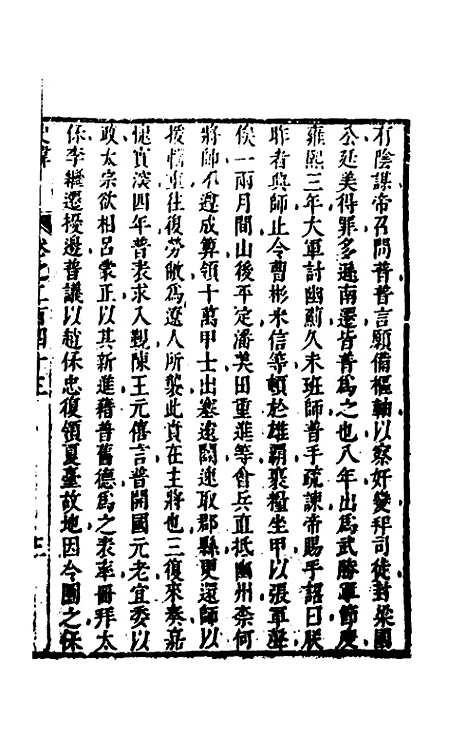 有陰謀帝召問普普言願備樞軸以察奸變拜司徒封梁國
公廷美得罪多遜南遷皆普爲之也八年出爲武勝軍節度
雍熙三年大軍討幽薊久未班師普手疏諫帝賜手詔曰朕
昨者興師止令曹彬米信等頓於雄霸裹糧坐甲以張軍聲
俟一兩月間山後平定潘美田重進等會兵直抵幽州奈何
將師不遵成算領十萬甲士出塞遠鬬速取郡縣更還師以
援輜重往復勞敝爲遼人所襲此責在主將也三復來奏嘉
愧實深四年普表求入覲陳王元僖言普開國元老宜委以
政太宗欲相呂蒙正以其新進藉普舊德爲之表率冊拜太
保李繼遷擾邊普議以趙保忠復領夏臺故地因令圖之保
史緯 卷之二百四十三